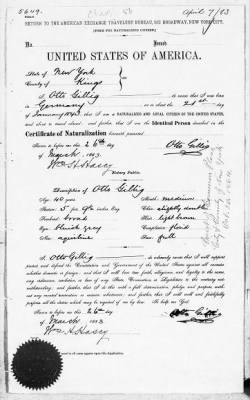 5649.
April 7/83
RETURN TO THE AMERICAN EXCHANGE TRAVELERS' BUREAU, 162 BROADWAY, NEW YORK CITY.
[FORM FOR NATURALIZED CITIZEN.]
No. Issued
UNITED STATES OF AMERICA.
State of New York
County of Kings
I, Otto Gillig, do swear that I was born
in Germany on or about the 21st day of
January 1843; that I am a NATURALIZED AND LOYAL CITIZEN OF THE UNITED STATES,
and about to travel abroad; and further, that I am the Identical Person described in the
Certificate of Naturalization herewith presented.
Sworn to before me this 26th day Otto Gillig
of March 1883
Wm H. Hasey
Notary Public.
Description of Otto Gillig
Age: 40 years Mouth: medium
Stature: 5 feet inches Eng. Chin:
Forehead: broad Hair: light brown
Eyes: gray Complexion: florid
Nose: aquiline Face: full
I, Otto Gillig, do solemnly swear that I will support
protect and defend the Constitution and Government of the United States against all enemies,
whether domestic or foreign; and that I will bear true faith, allegiance, and loyalty to the same,
any ordinance, resolution, or law of any State, Convention or Legislature to the contrary not-
withstanding; and further, that I do this with a full determination, pledge and purpose, with-
out any mental reservation or evasion whatsoever; and further, that I will well and faithfully
perform all the duties which may be required of me by law. So help me God.
Sworn to before me this 26th day
of March 1883 Otto Gillig
Wm H. Hasey